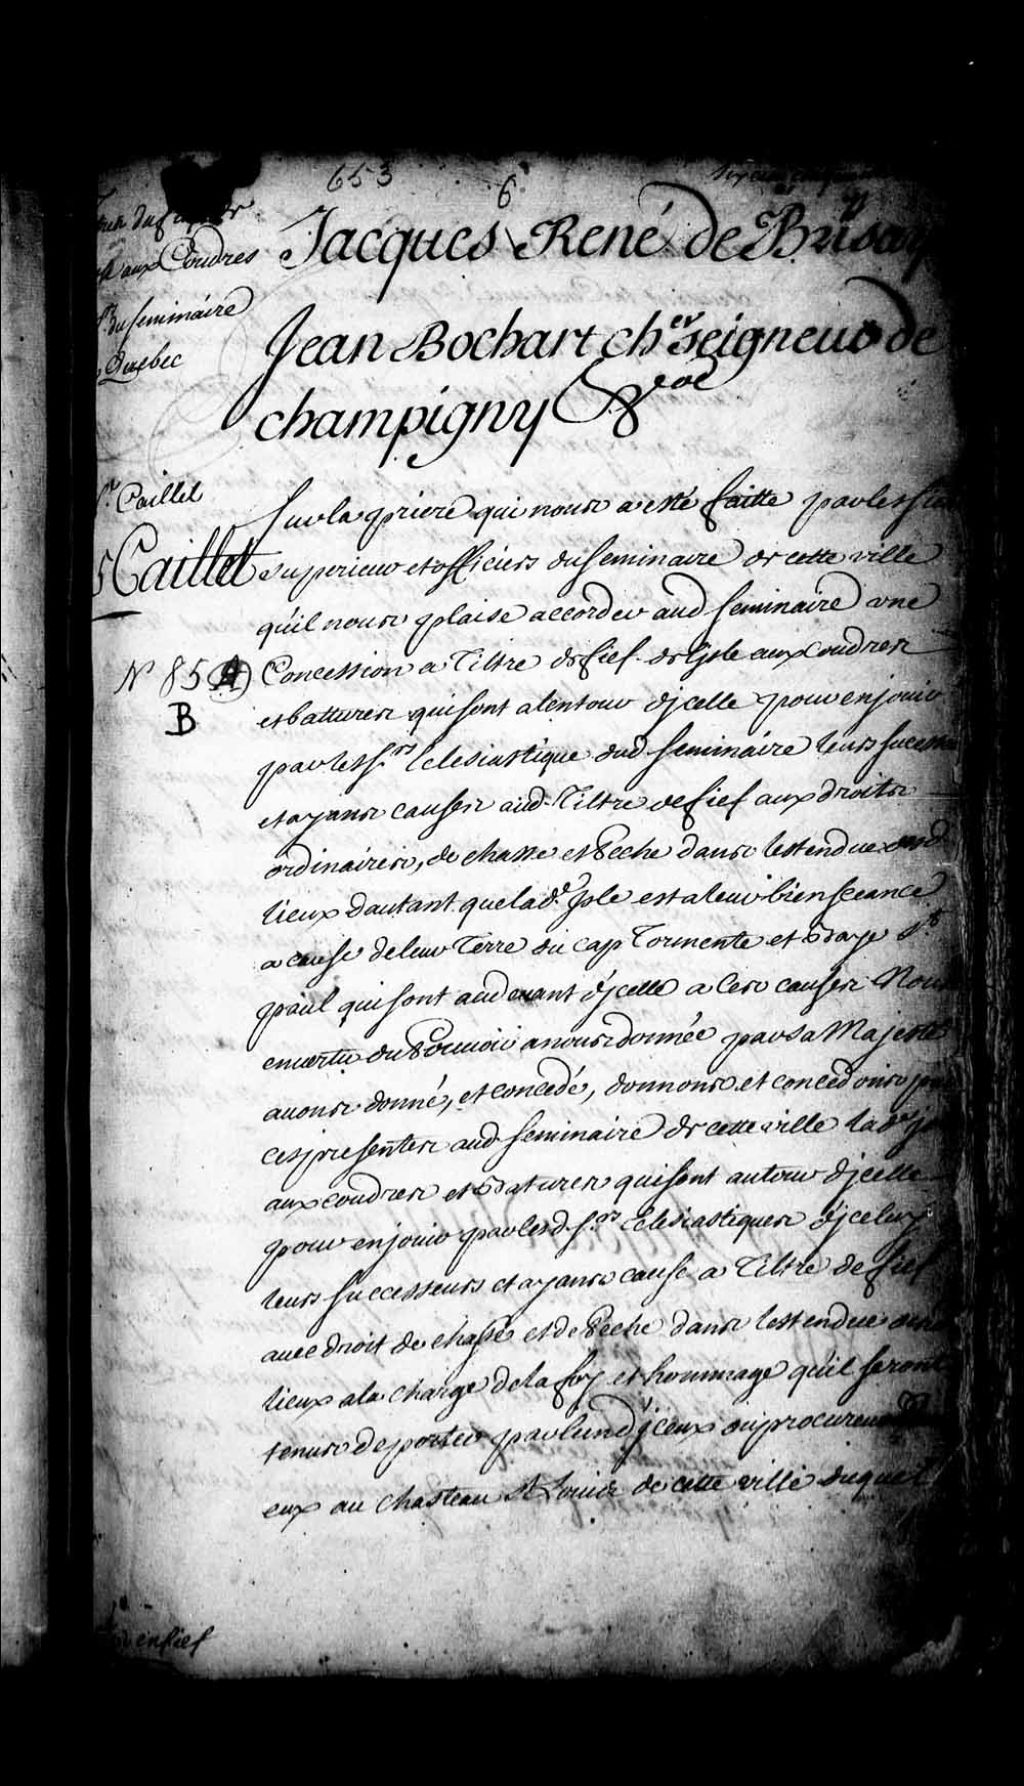 653
6
aux Coudres
du seminaire
Quebec
Jacques René de Brisay
Jean Bochart ch.er seigneur de
champigny &
Sr. Caillet
Caillet
N 85 A
B
Sur la priere qui nous a esté faitte par les
superieur et officiers du seminaire de cette ville
quil nous plaise accorder aud seminaire une
Concession a Tiltre de fief de lisle aux Coudres
et battures qui sont alentour djcelle pour en jouir
par les Srs Eclesiastique dud seminaire leurs
et ayans causes aud. Tiltre de fief aux droits
ordinaires, de chasse et Peche dans lestendue desd
lieux dautant que lad.e Jsle est a leur bienseance
a cause de leur Terre du cap Tormente et Baye St
paul qui sont audevant djcelle a Ces causes Nous
en vertu du Pouvoir a nous donnée par sa Majesté
avons donné, et concedé, donnons et concedons par
ces presentes aud seminaire de cette ville lad.e
aux coudres et Batures qui sont autour djcelle
pour en jouir par lesd. Srs Eclesiastiques djceluy
leurs successeurs et ayans cause a Tiltre de fief
avec droit de chasse et de Peche dans lestendue desd
lieux a la charge de la foy et hommage quil seront
tenus de porter par lun djceux ou procureur
eux au chasteau St Louis de cette ville duquel
en fief